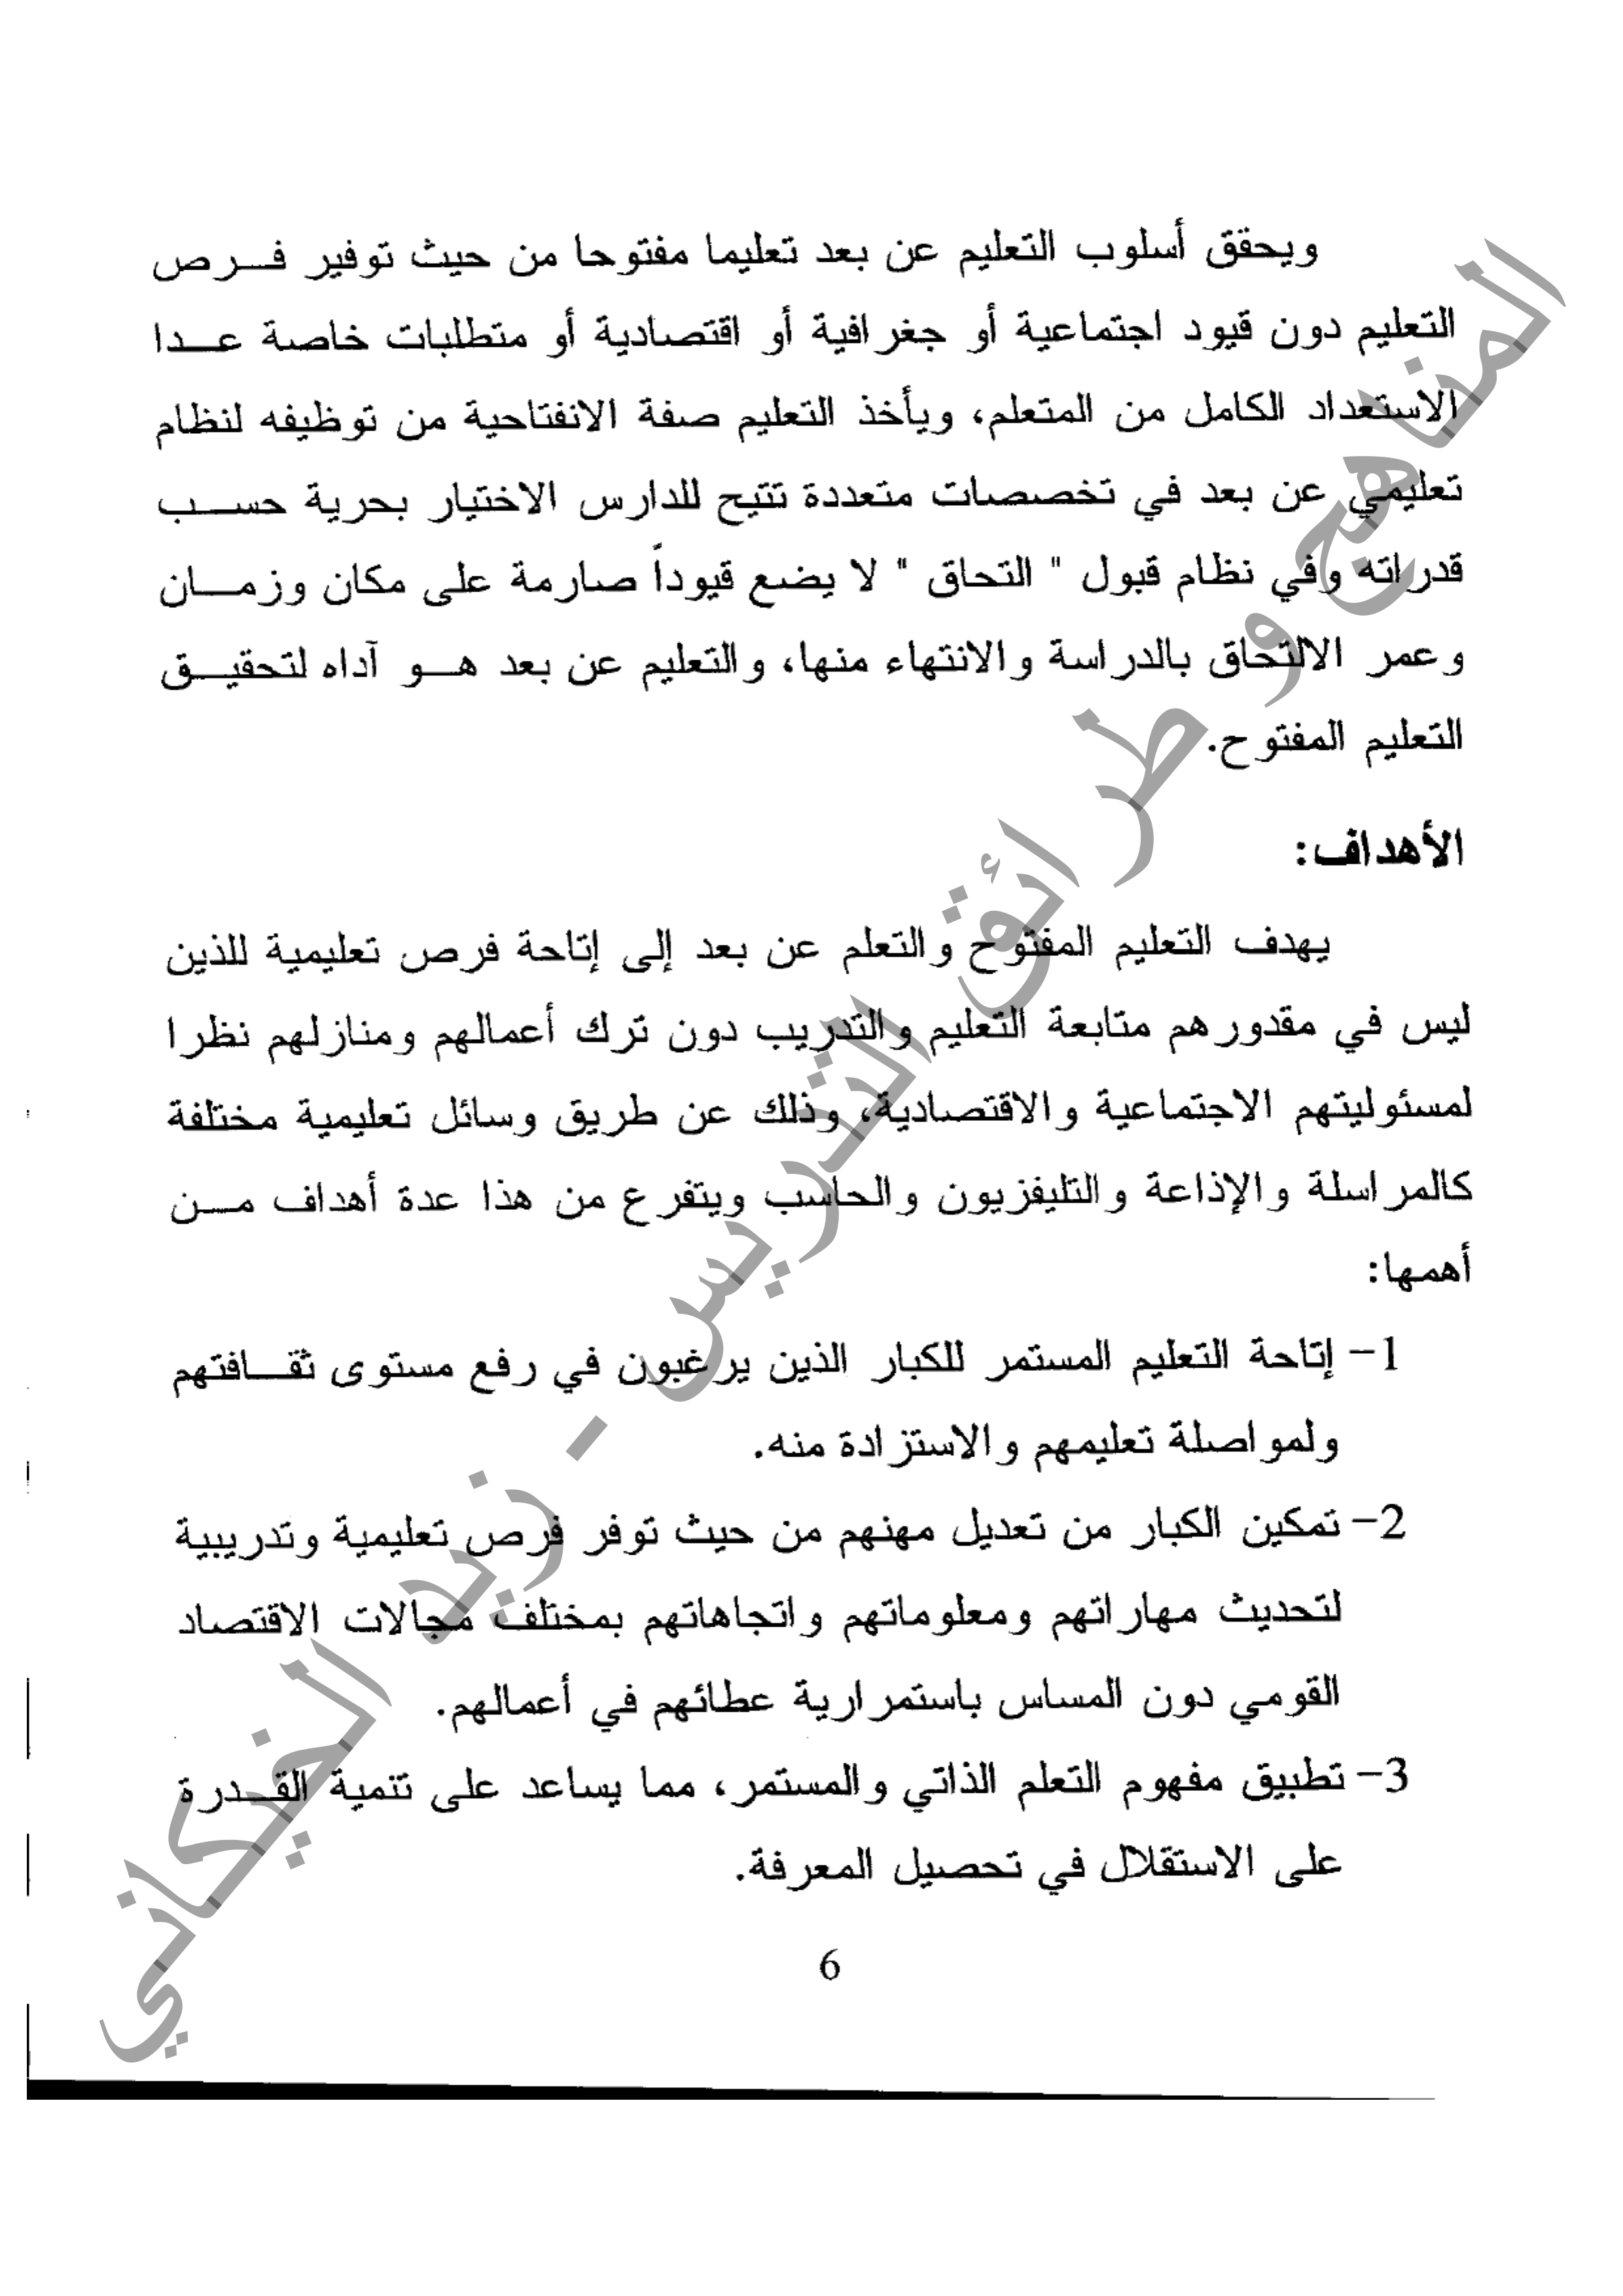 ويحقق أسلوب التعليم عن بعد تعليما مفتوحا من حيث توفير فرص
التعليم دون قيود اجتماعية أو جغرافية أو اقتصادية أو متطلبات خاصة عدا
الاستعداد الكامل من المتعلم، ويأخذ التعليم صفة الانفتاحية من توظيفه لنظام
تعليمي عن بعد في تخصصات متعددة تتيح للدارس الاختيار بحرية حسب
قدراته وفي نظام قبول " التحاق " لا يضع قيوداً صارمة على مكان وزمان
وعمر الالتحاق بالدراسة والانتهاء منها، والتعليم عن بعد هو آداه لتحقيق
التعليم المفتوح.
الأهداف:
يهدف التعليم المفتوح والتعلم عن بعد إلى إتاحة فرص تعليمية للذين
ليس في مقدورهم متابعة التعليم والتدريب دون ترك أعمالهم ومنازلهم نظرا
لمسئوليتهم الاجتماعية والاقتصادية، وذلك عن طريق وسائل تعليمية مختلفة
كالمراسلة والإذاعة والتليفزيون والحاسب ويتفرع من هذا عدة أهداف من
أهمها:
1- إتاحة التعليم المستمر للكبار الذين يرغبون في رفع مستوى ثقافتهم
ولمواصلة تعليمهم والاستزادة منه.
2- تمكين الكبار من تعديل مهنهم من حيث توفر فرص تعليمية وتدريبية
لتحديث مهاراتهم ومعلوماتهم واتجاهاتهم بمختلف مجالات الاقتصاد
القومي دون المساس باستمرارية عطائهم في أعمالهم.
3- تطبيق مفهوم التعلم الذاتي والمستمر، مما يساعد على تنمية القدرة
على الاستقلال في تحصيل المعرفة.
6
المناهج و طرائق التدريس - زيد الخيكاني